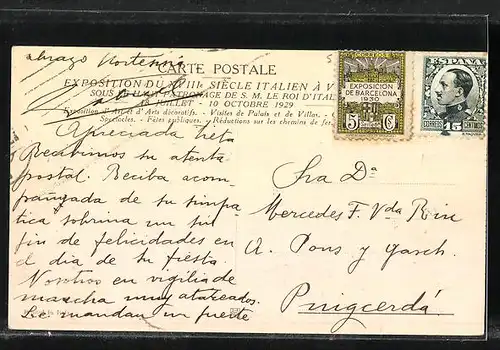 abrazo Hortensia
CARTE POSTALE
EXPOSITION DU XVIIIe SIÈCLE ITALIEN A V
SOUS LE HAUT PATRONAGE DE S. M. LE ROI D'ITAL
18 JUILLET - 10 OCTOBRE 1929
Exposition d'Art et d'Arts décoratifs. - Visites de Palais et de Villas. -
Spectacles. - Fêtes publiques. - Réductions sur les chemins de fer
Apreciada
Recibimos su atenta
postal. Reciba acom-
pañada de su simpa-
tica sobrina un sin
fin de felicidades en
el dia de su fiesta.
Nosotros en vigilia de
marcha muy atareados.
Le mandan un fuerte
CORREOS
EXPOSICION
DE BARCELONA
1930
5 C
ESPAÑA
CORREOS 15 CENTS
Sra Dª
Mercedes F. Vda
A. Pons y Gasch.
Puigcerdá